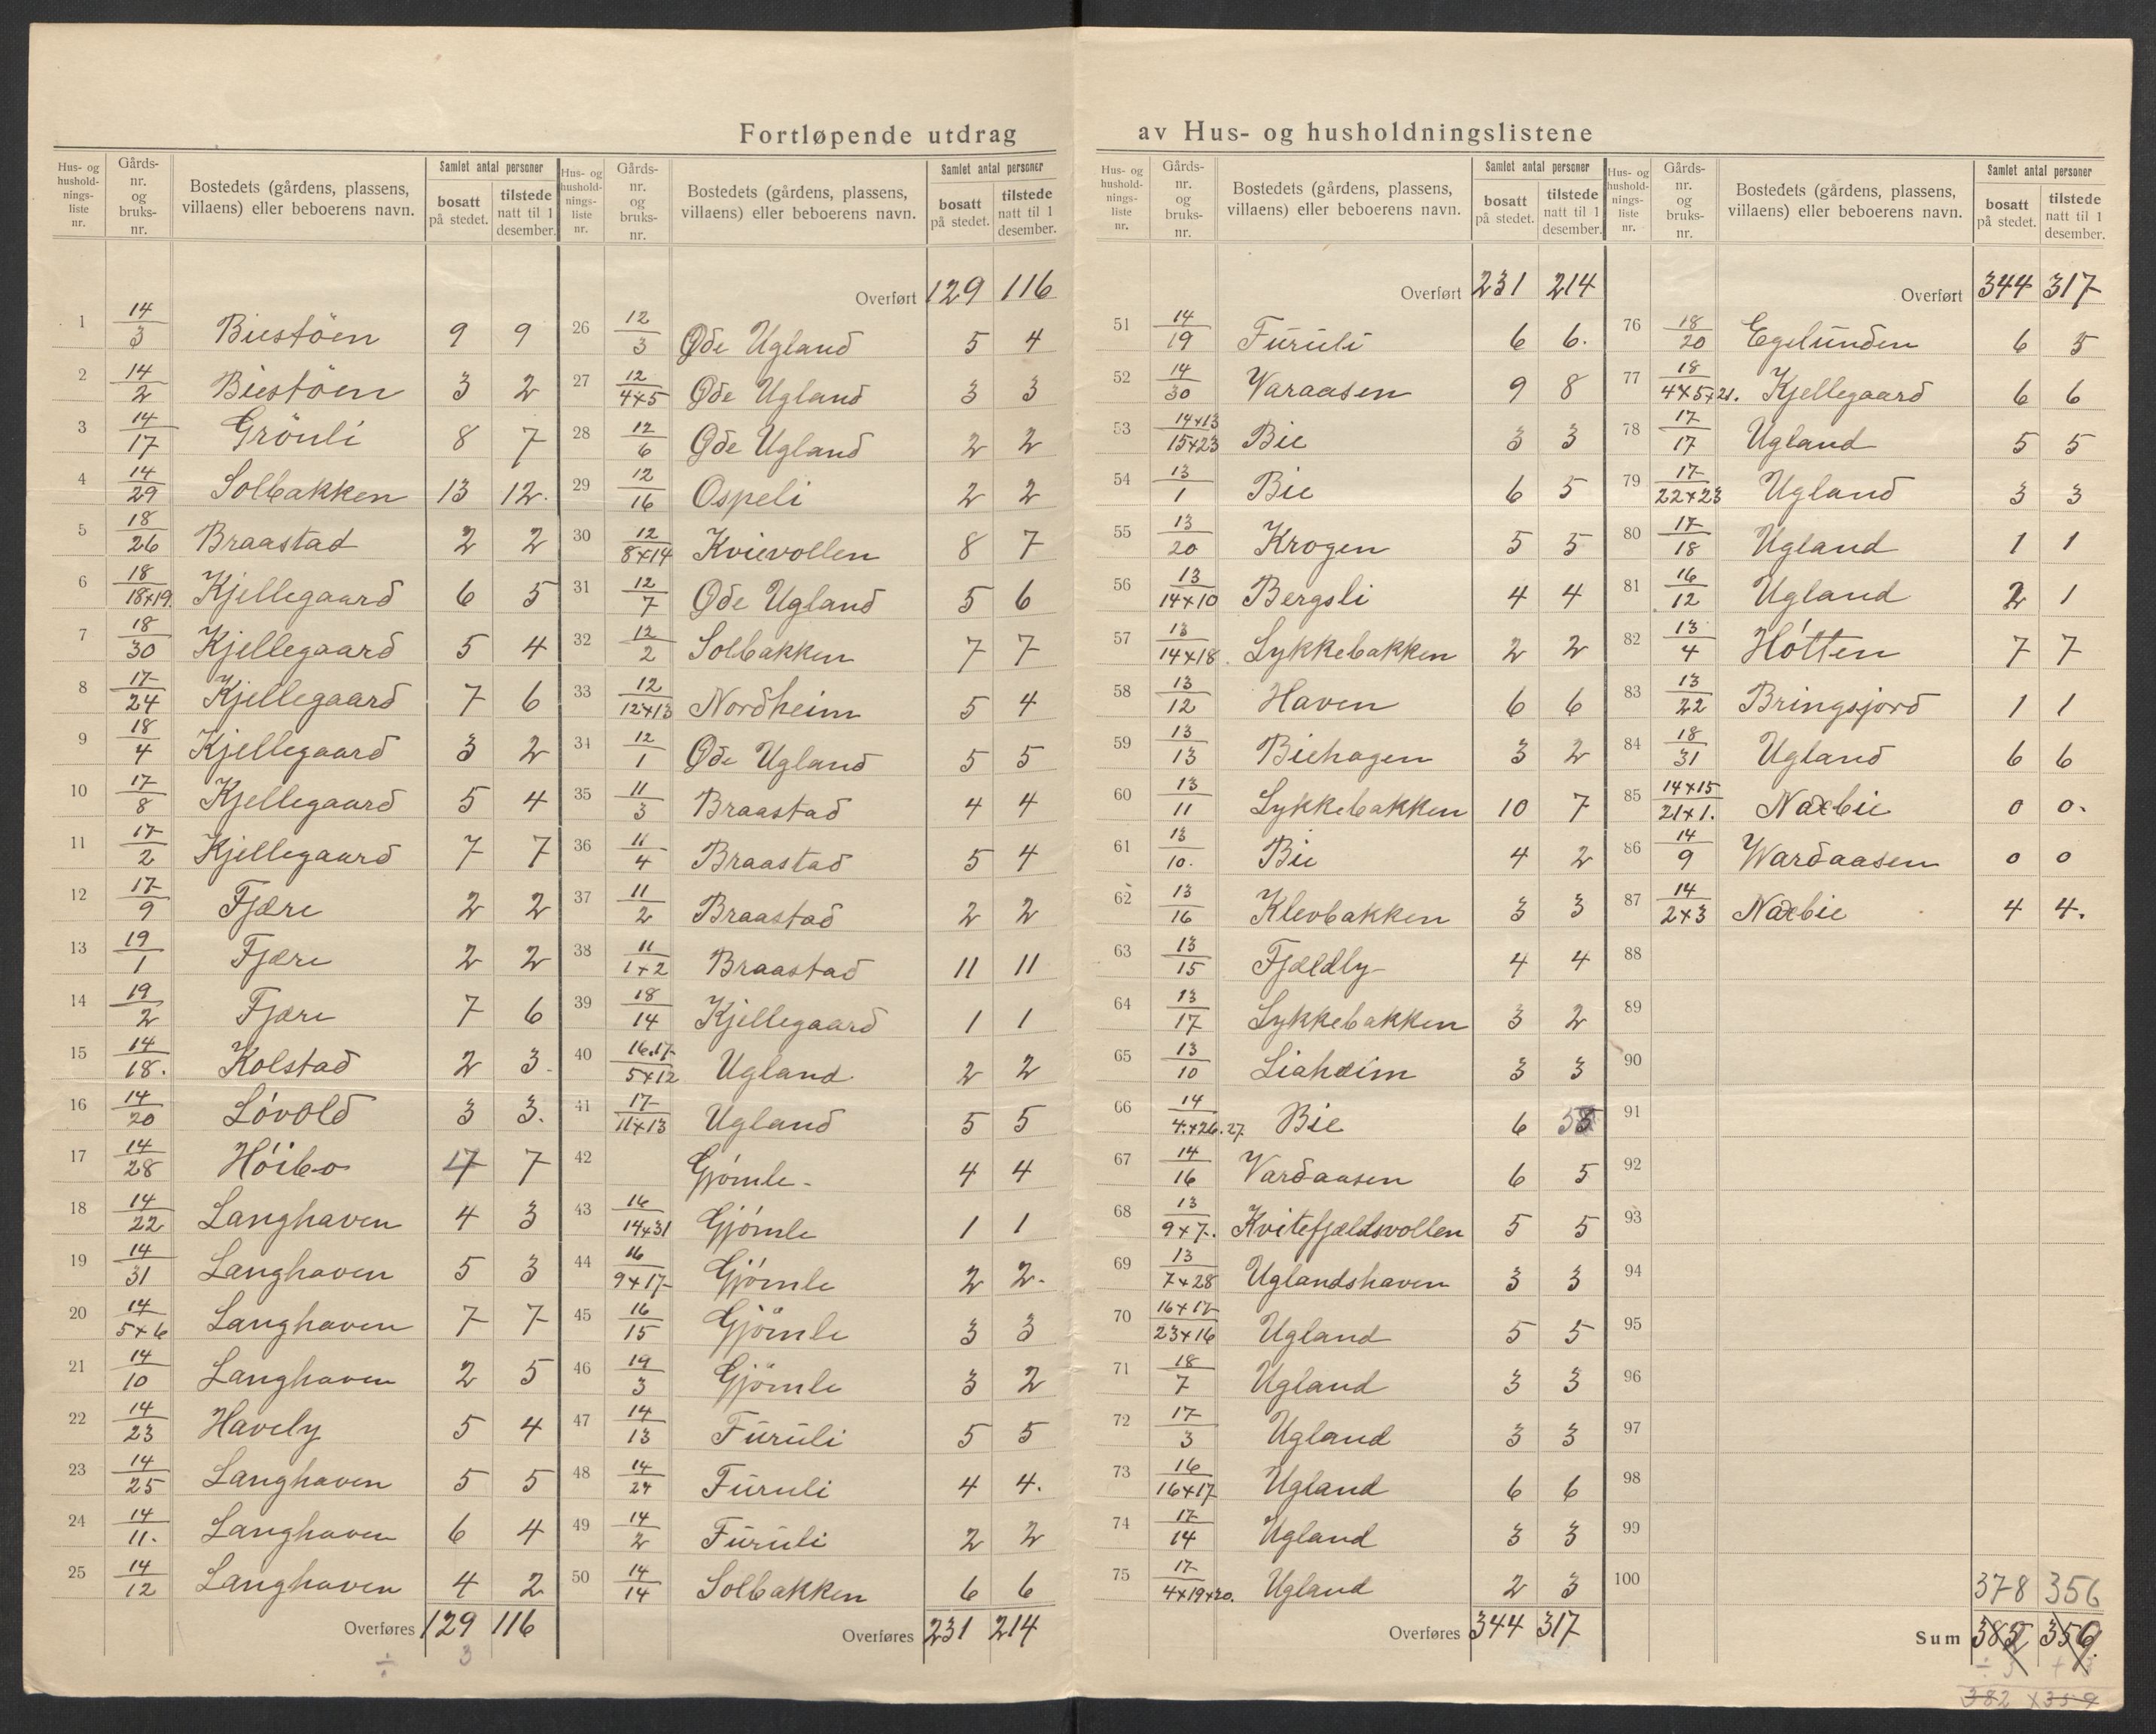 Fortløpende utdrag av Hus- og husholdningslistene
Hus- og husholdningsliste nr. | Gårdsnr. og bruksnr. | Bostedets (gårdens, plassens, villaens) eller beboerens navn. | Samlet antal personer bosatt på stedet. | tilstede natt til 1 desember.
1 14/3 Biestöen 9 9
2 14/2 Biestöen 3 2
3 14/17 Grönli 8 7
4 14/29 Solbakken 13 12.
5 18/26 Braastad 2 2
6 18/18+19. Kjellegaard 6 5
7 18/30 Kjellegaard 5 4
8 17/24 Kjellegaard 7 6
9 18/4 Kjellegaard 3 2
10 17/8 Kjellegaard 5 4
11 17/2 Kjellegaard 7 7
12 17/9 Fjære 2 2
13 19/1 Fjære 2 2
14 19/2 Fjære 7 6
15 14/18. Kolstad 2 3.
16 14/20 Lóvold 3 3.
17 14/28 Hóibo 7 7
18 14/22 Langhaven 4 3
19 14/31 Langhaven 5 3
20 14/5+6 Langhaven 7 7
21 14/10 Langhaven 2 5
22 14/23 Havely 5 4
23 14/25 Langhaven 5 5
24 14/11. Langhaven 6 4
25 14/12 Langhaven 4 2
Overføres 129 116
÷ 3
Hus- og husholdningsliste nr. | Gårdsnr. og bruksnr. | Bostedets (gårdens, plassens, villaens) eller beboerens navn. | Samlet antal personer bosatt på stedet. | tilstede natt til 1 desember.
Overført 129 116
26 12/3 Øde Ugland 5 4
27 12/4+5 Øde Ugland 3 3
28 12/6 Øde Ugland 2 2
29 12/16 Ospeli 2 2
30 12/8+14 Kvievollen 8 7
31 12/7 Øde Ugland 5 6
32 12/2 Solbakken 7 7
33 12/12+13 Nordheim 5 4
34 12/1 Øde Ugland 5 5
35 11/3 Braastad 4 4
36 11/4 Braastad 5 4
37 11/2 Braastad 2 2
38 11/1+2 Braastad 11 11
39 18/14 Kjellegaard 1 1
40 16.17/5+12 Ugland 2 2
41 17/11+13 Ugland 5 5
42 Gjómle 4 4
43 16/14+31 Gjómle 1 1
44 16/9+17 Gjómle 2 2.
45 16/15 Gjömle 3 3
46 19/3 Gjömle 3 2
47 14/13 Furuli 5 5
48 14/24 Furuli 4 4.
49 14/2 Furuli 2 2
50 14/14 Solbakken 6 6
Overføres 231 214
Hus- og husholdningsliste nr. | Gårdsnr. og bruksnr. | Bostedets (gårdens, plassens, villaens) eller beboerens navn. | Samlet antal personer bosatt på stedet. | tilstede natt til 1 desember.
Overført 231 214
51 14/19 Furuli 6 6.
52 14/30 Varaasen 9 8
53 14+13/15+23 Bie 3 3
54 13/1 Bie 6 5
55 13/20 Krogen 5 5
56 13/14+10 Bergsli 4 4
57 13/14+18. Lykkebakken 2 2
58 13/12 Haven 6 6
59 13/13 Biehagen 3 2
60 13/11 Lykkebakken 10 7
61 13/10. Bie 4 2
62 13/16 Klevbakken 3 3
63 13/15 Fjældly 4 4
64 13/17 Lykkebakken 3 2
65 13/10 Liaheim 3 3
66 14/4.+26.27 Bie 6 5
67 14/16 Vardaasen 6 5
68 13/9+7. Kvitefjældsvollen 5 5
69 13/7+28 Uglandshaven 3 3
70 16+17/23+16 Ugland 5 5
71 18/7 Ugland 3 3
72 17/3 Ugland 3 3
73 16/16+17 Ugland 6 6
74 17/14 Ugland 3 3
75 17/4+19+20. Ugland 2 3
Overføres 344 317
Hus- og husholdningsliste nr. | Gårdsnr. og bruksnr. | Bostedets (gårdens, plassens, villaens) eller beboerens navn. | Samlet antal personer bosatt på stedet. | tilstede natt til 1 desember.
Overført 344 317
76 18/20 Egelunden 6 5
77 18/4+5+21. Kjellegaard 6 6
78 17/17 Ugland 5 5
79 17/22+23 Ugland 3 3
80 17/18 Ugland 1 1
81 16/12 Ugland 2 1
82 13/4 Hótten 7 7
83 13/22 Bringsjord 1 1
84 18/31 Ugland 6 6
85 14+15/21+1. Nærbie 0 0.
86 14/9 Vardaasen 0 0
87 14/2+3 Nærbie 4 4.
88
89
90
91
92
93
94
95
96
97
98
99
100 378 356
Sum
÷ 3
382 359